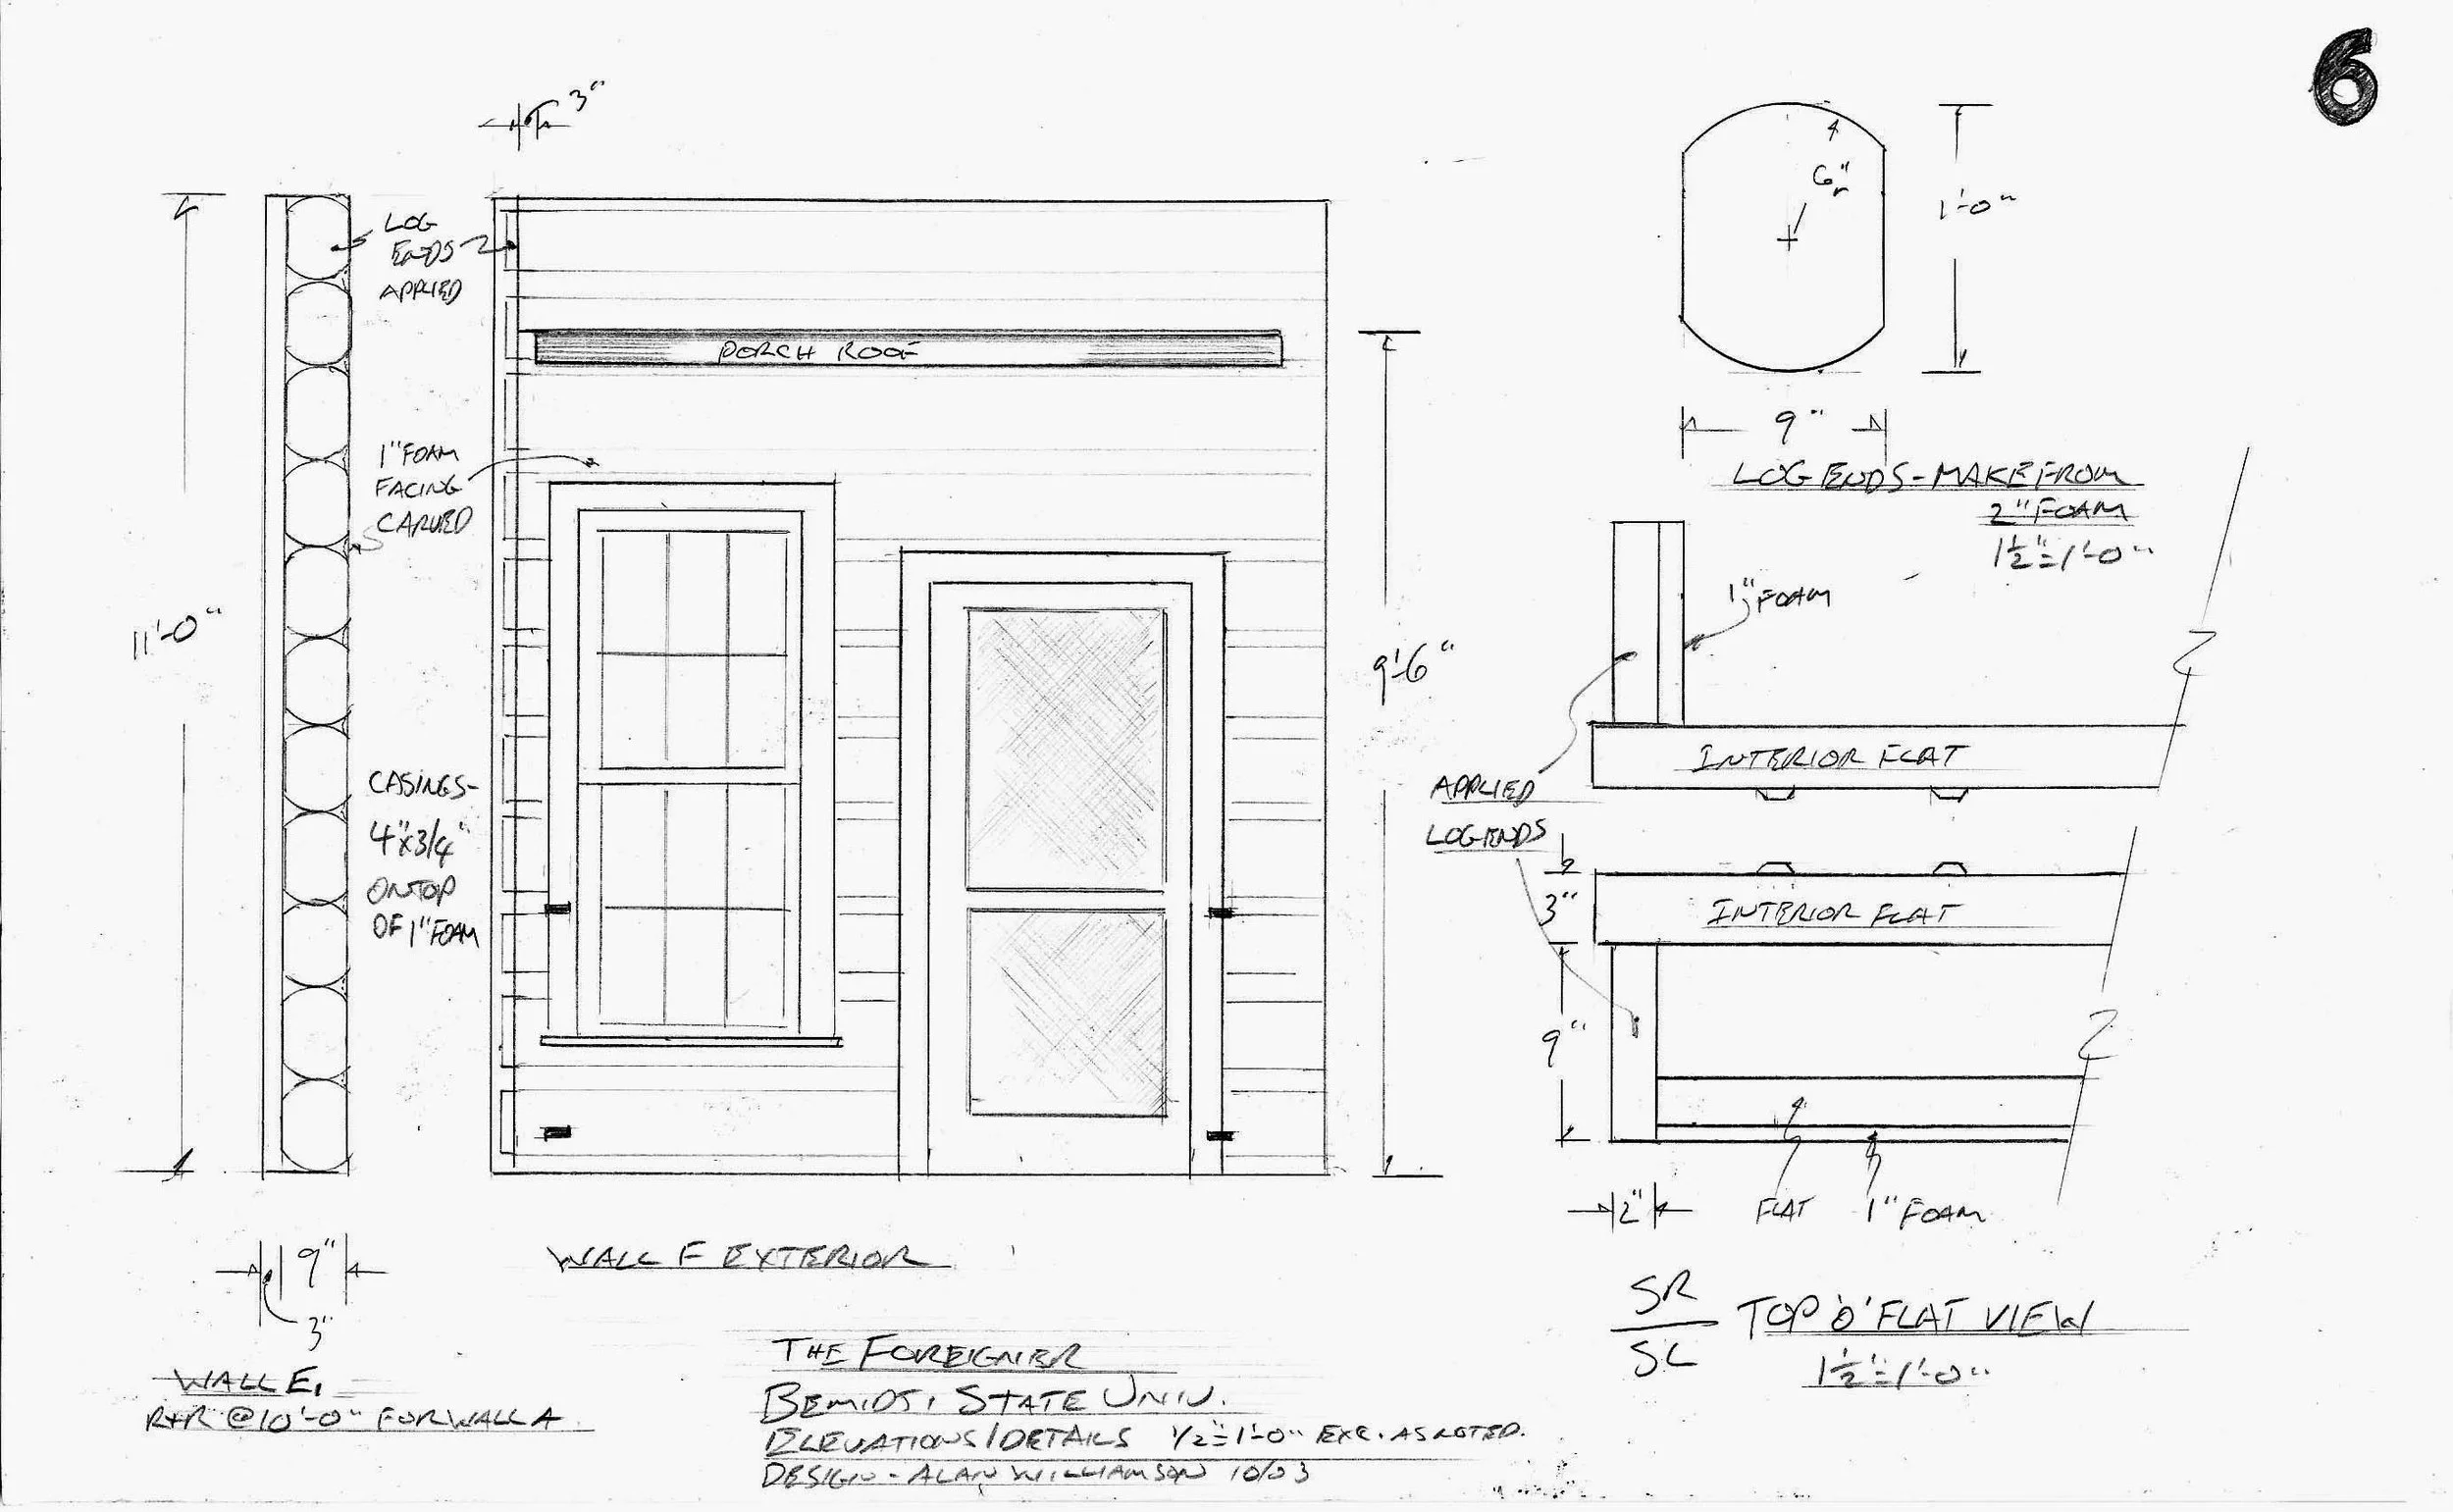 6
3"
LOG
ENDS
APPLIED
PORCH ROOF
1" FOAM
FACING
CARVED
11'-0"
CASINGS-
4"x3/4"
ON TOP
OF 1" FOAM
9'-6"
9"
3"
WALL E,
R+R @ 10'-0" FOR WALL A
WALL F EXTERIOR
6"r
1'-0"
9"
LOG ENDS - MAKE FROM
2" FOAM
1½"=1'-0"
1" FOAM
INTERIOR FLAT
APPLIED
LOG ENDS
3"
INTERIOR FLAT
9"
2"
FLAT
1" FOAM
SR
SL
TOP O' FLAT VIEW
1½"=1'-0"
THE FOREIGNER
BEMIDJI STATE UNIV.
ELEVATIONS/DETAILS 1/2"=1'-0" EXC. AS NOTED.
DESIGN - ALAN WILLIAMSON 10/03